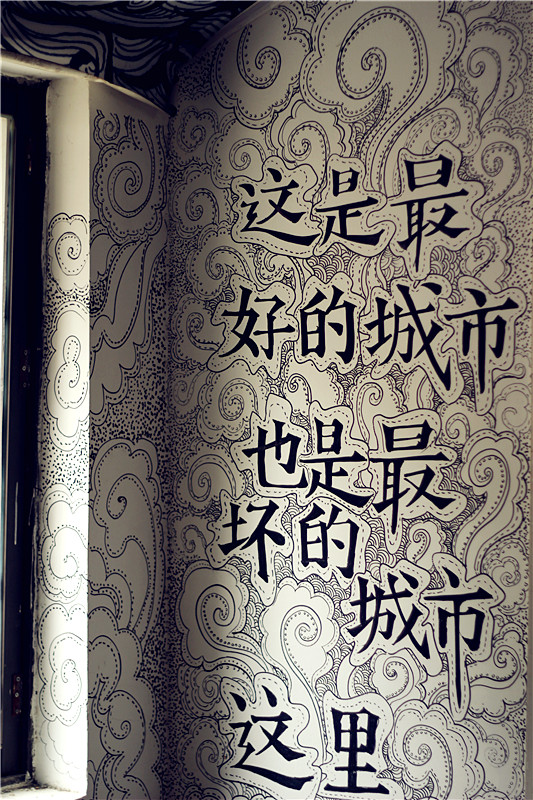 这是最
好的城市
也是最
坏的
城市
这里